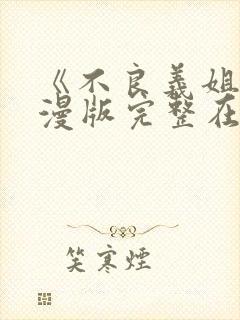 《不良義姐
漫版完整在
笑寒煙